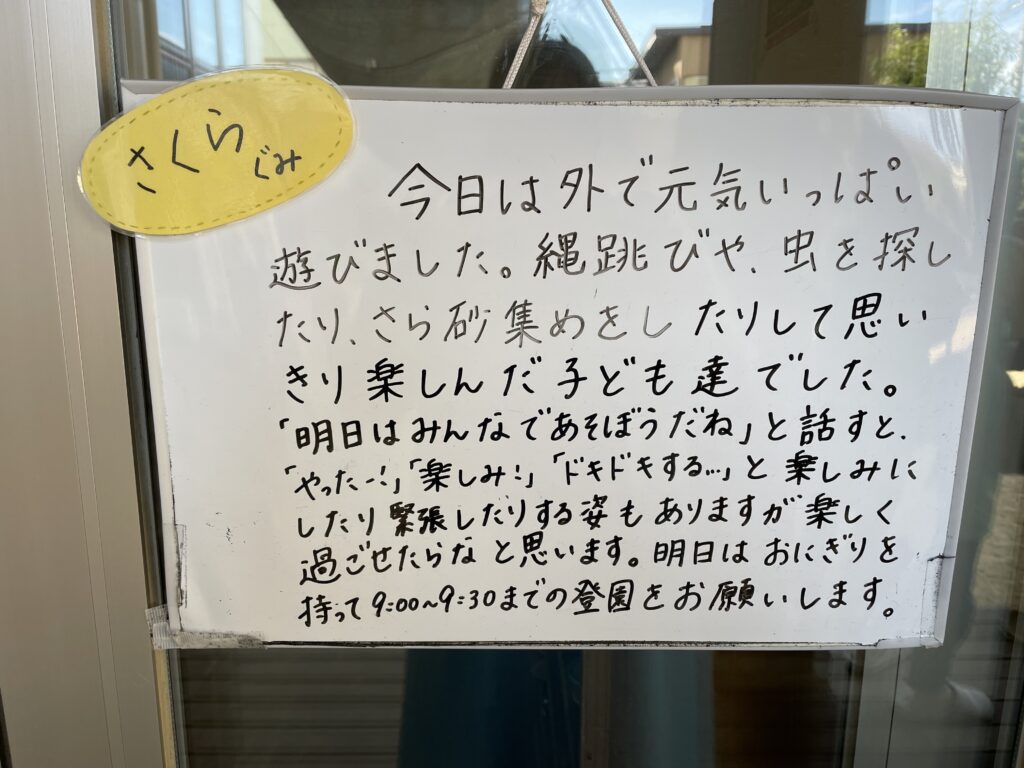 さくらぐみ
今日は外で元気いっぱい
遊びました。縄跳びや、虫を探し
たり、さら砂集めをしたりして思い
きり楽しんだ子ども達でした。
「明日はみんなであそぼうだね」と話すと、
「やったー!」「楽しみ!」「ドキドキする…」と楽しみに
したり緊張したりする姿もありますが楽しく
過ごせたらなと思います。明日はおにぎりを
持って9:00~9:30までの登園をお願いします。